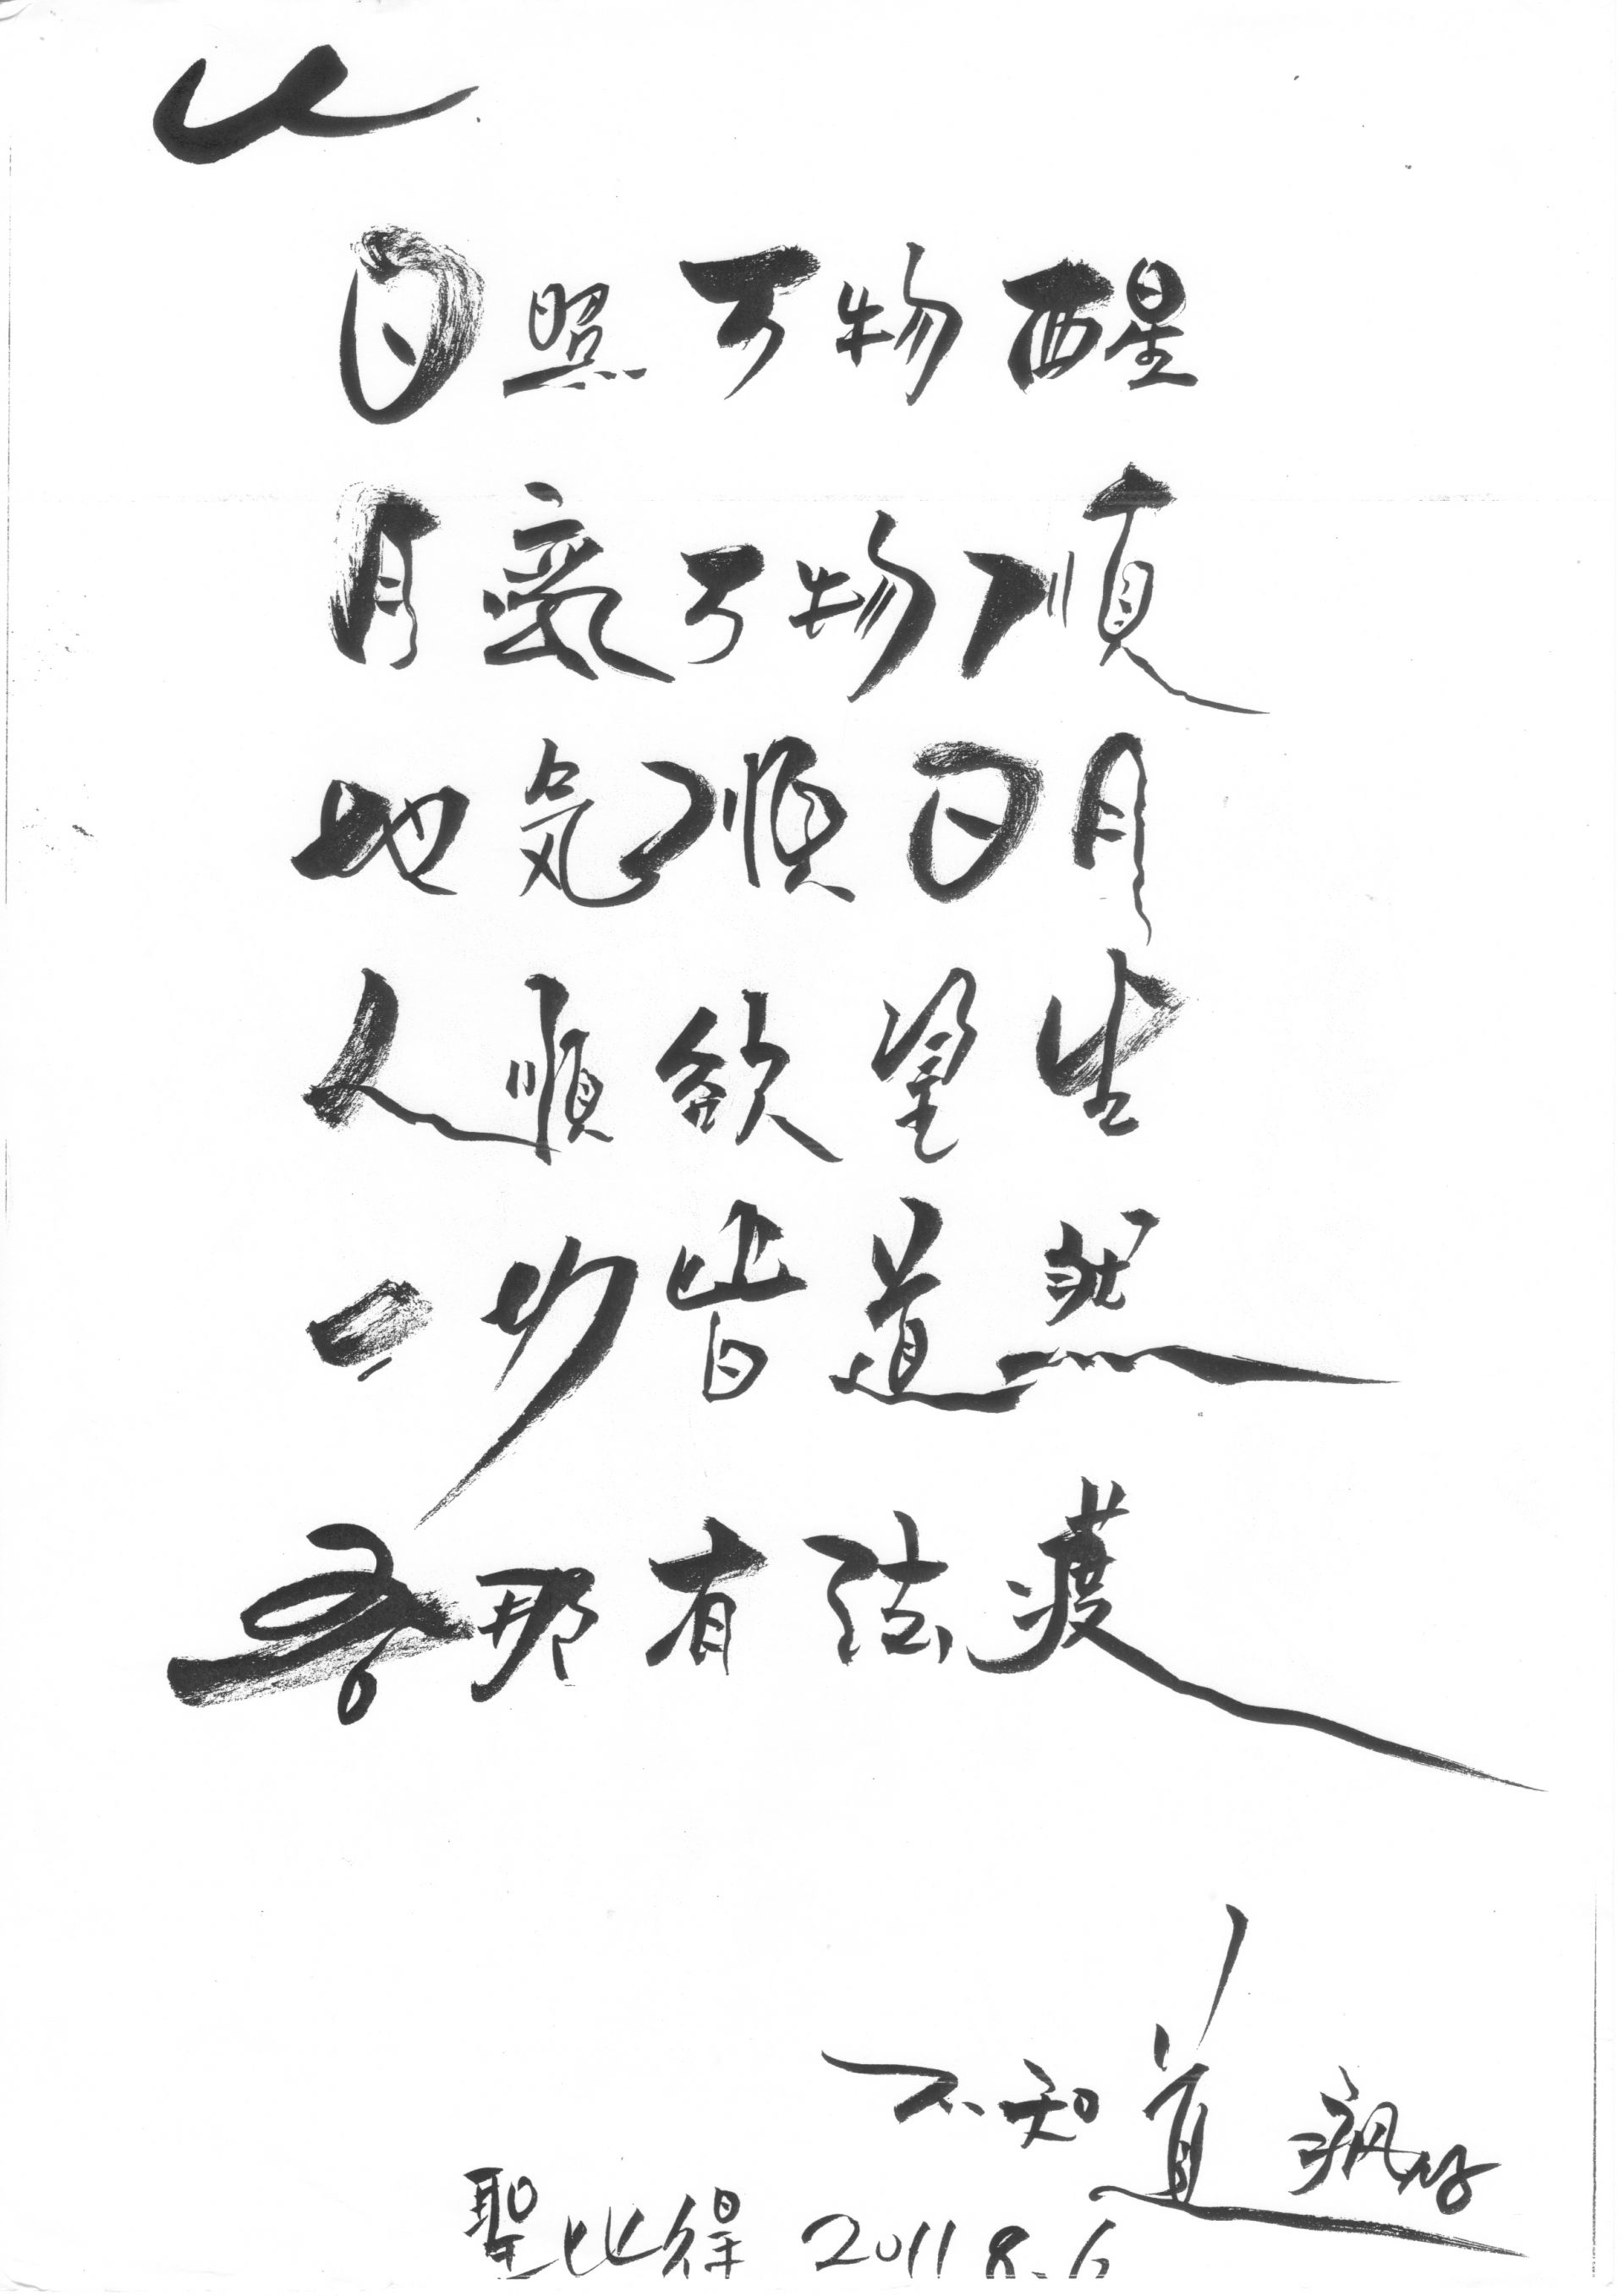 日照万物醒
月万物順
地気順日月
人順欲望生
一切皆道然
那有法度
不知道 瘋
聖比得 2011 8.6